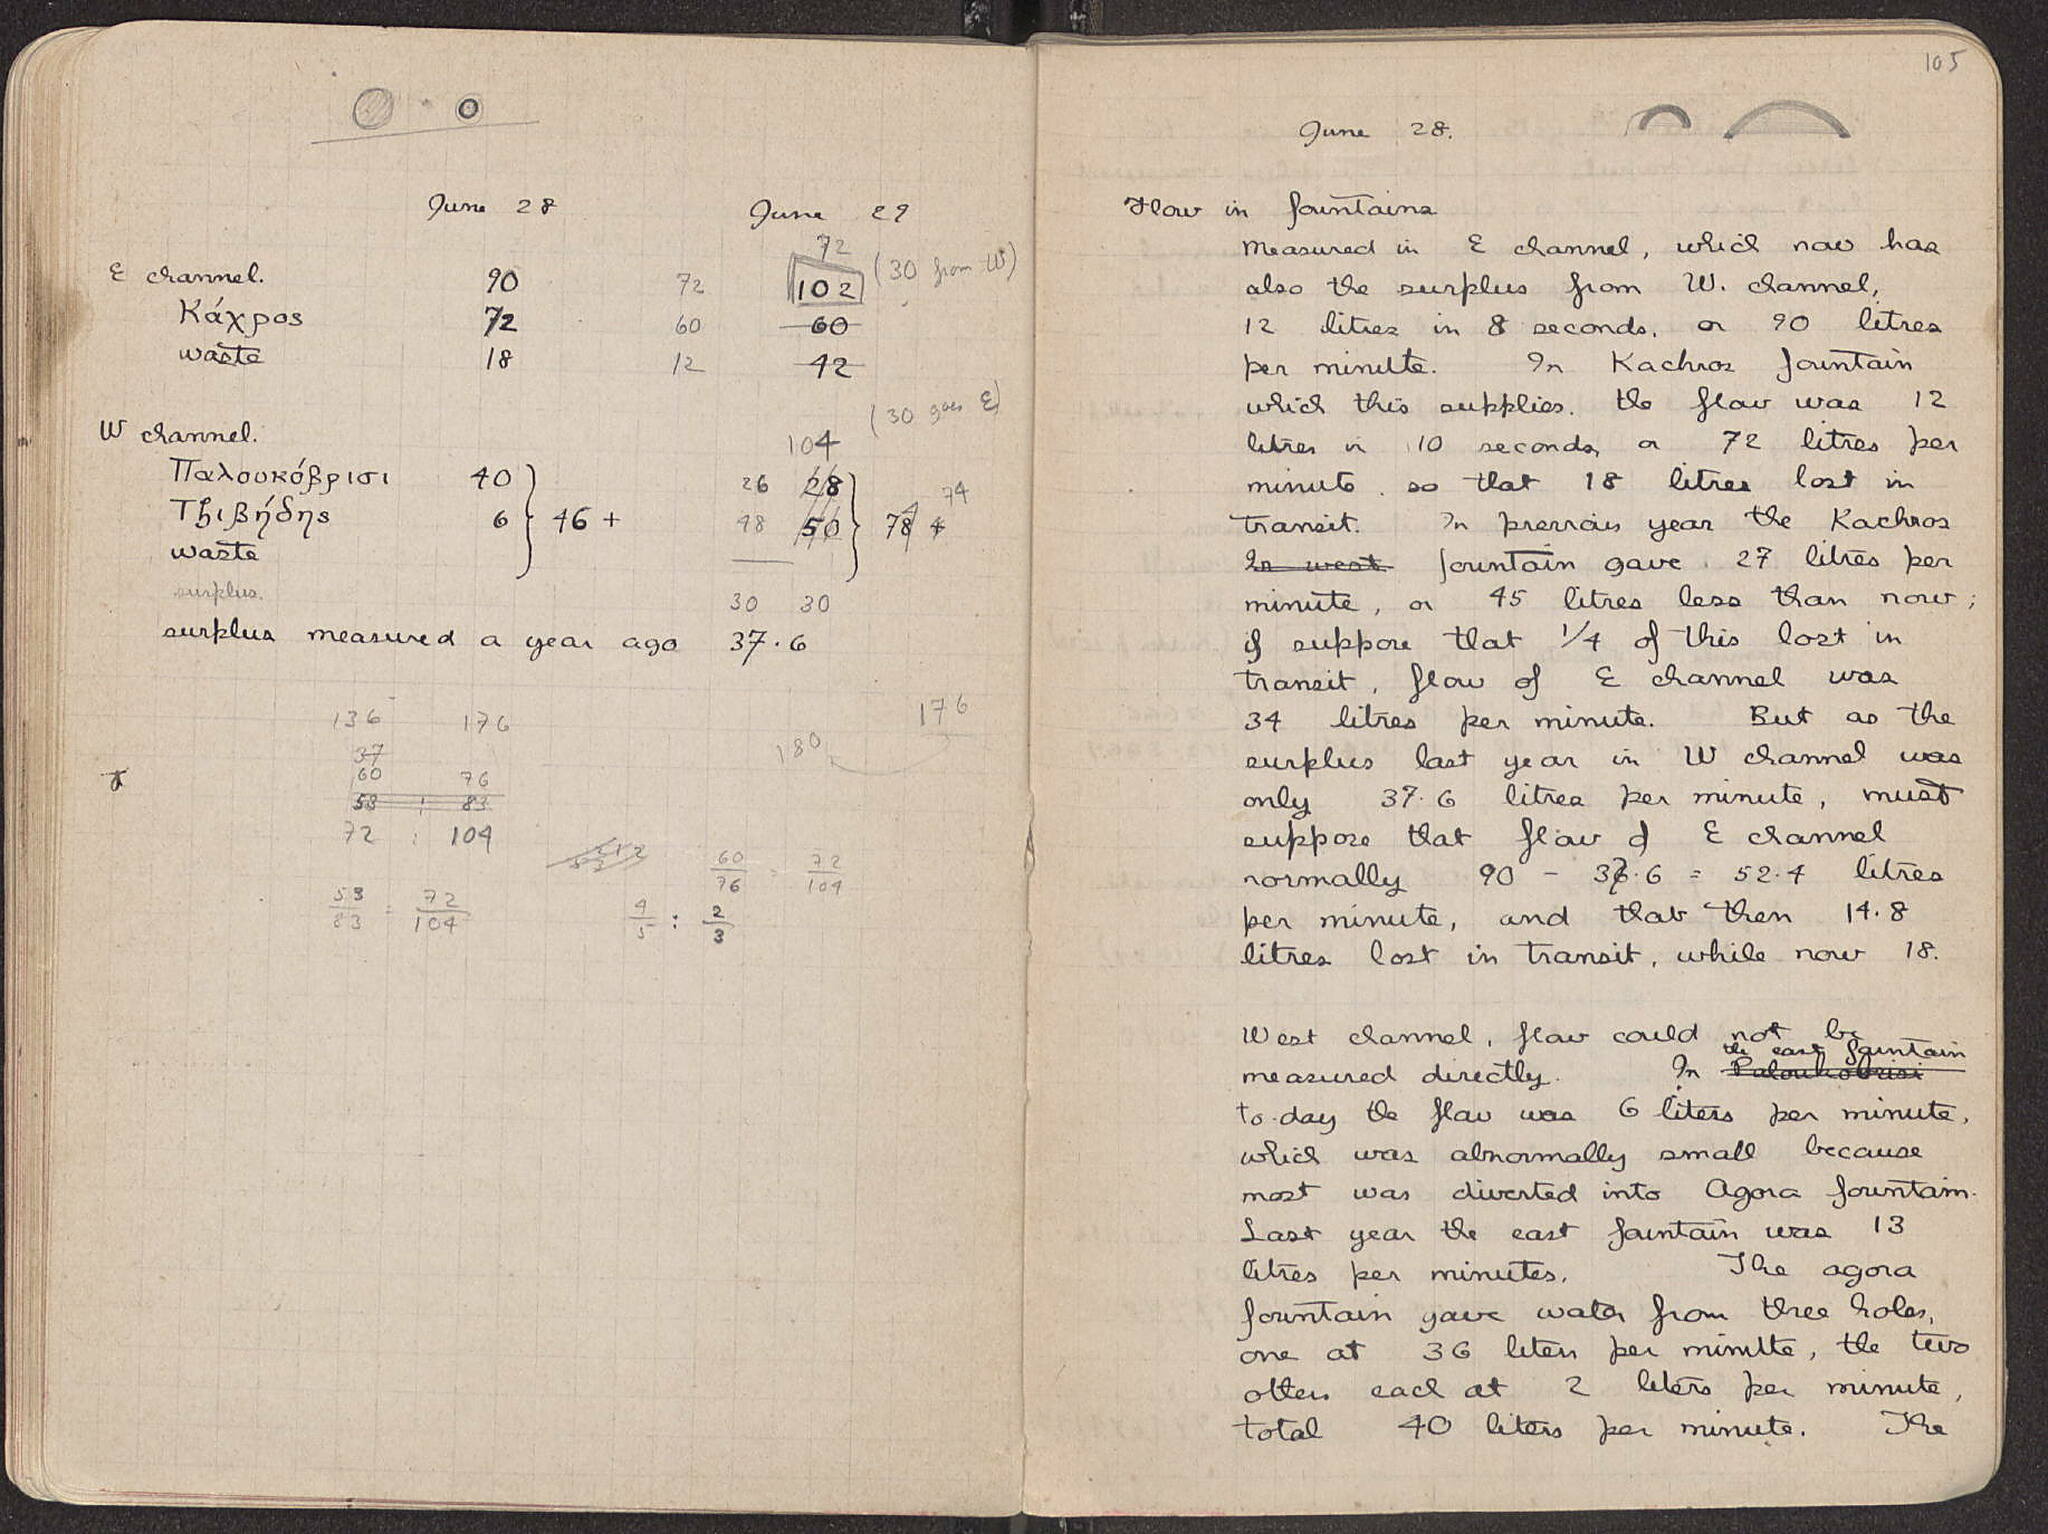 June 28 June 29
72
E channel. 90 72 102 (30 from W)
Κάχρος 72 60 60
waste 18 12 42
(30 goes E)
W channel. 104
Παλουκόβρισι 40 26 28
74
Τζιβήδης 6 46 + 48 50 78 +
waste
surplus. 30 30
surplus measured a year ago 37.6
136 176 176
37 180
60 76
58 : 83
72 : 104
60/76 = 72/104
53/83 = 72/104 4/5 : 2/3
105
June 28.
Flow in fountains
measured in E channel, which now has
also the surplus from W. channel,
12 litres in 8 seconds, or 90 litres
per minute. In Kachros fountain
which this supplies. the flow was 12
litres in 10 seconds, or 72 litres per
minute. so that 18 litres lost in
transit. In previous year the Kachros
In west fountain gave 27 litres per
minute, or 45 litres less than now;
if suppose that 1/4 of this lost in
transit, flow of E channel was
34 litres per minute. But as the
surplus last year in W channel was
only 37.6 litres per minute, must
suppose that flow of E channel
normally 90 - 37.6 = 52.4 litres
per minute, and that then 14.8
litres lost in transit, while now 18.
West channel, flow could not be
the east fountain
measured directly. In Paloukobrisi
to-day the flow was 6 liters per minute,
which was abnormally small because
most was diverted into Agora fountain.
Last year the east fountain was 13
litres per minutes. The agora
fountain gave water from three holes,
one at 36 liters per minute, the two
others each at 2 liters per minute,
total 40 liters per minute. The